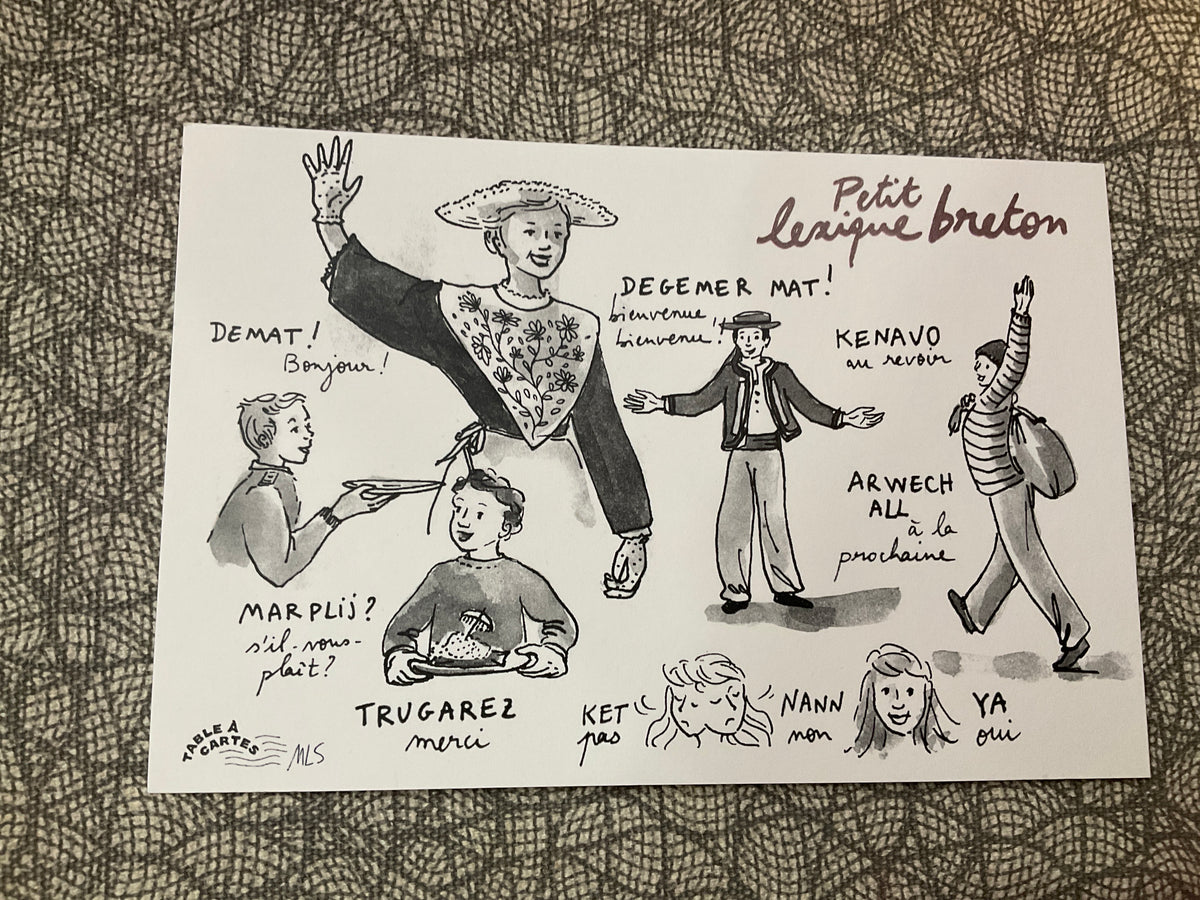 Petit
lexique breton
DEMAT !
Bonjour !
DEGEMER MAT !
bienvenue
bienvenue !
KENAVO
au revoir
ARWECH
ALL
à la
prochaine
MARPLIJ ?
s'il-vous-
plaît ?
TRUGAREZ
merci
KET
pas
NANN
non
YA
oui
TABLE À
CARTES
MLS